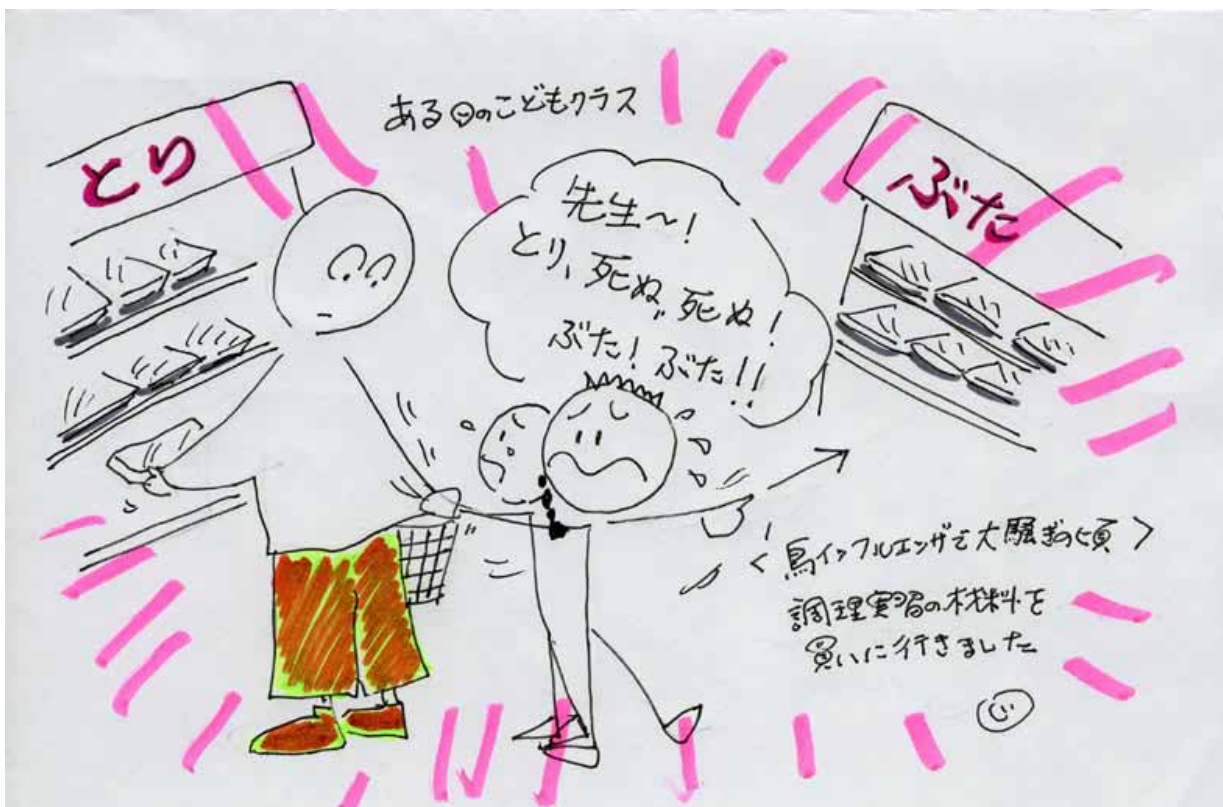 ある日のこどもクラス
とり
先生～!
とり、死ぬ、死ぬ!
ぶた! ぶた!!
ぶた
<鳥インフルエンザで大騒ぎの頃>
調理実習の材料を
買いに行きました